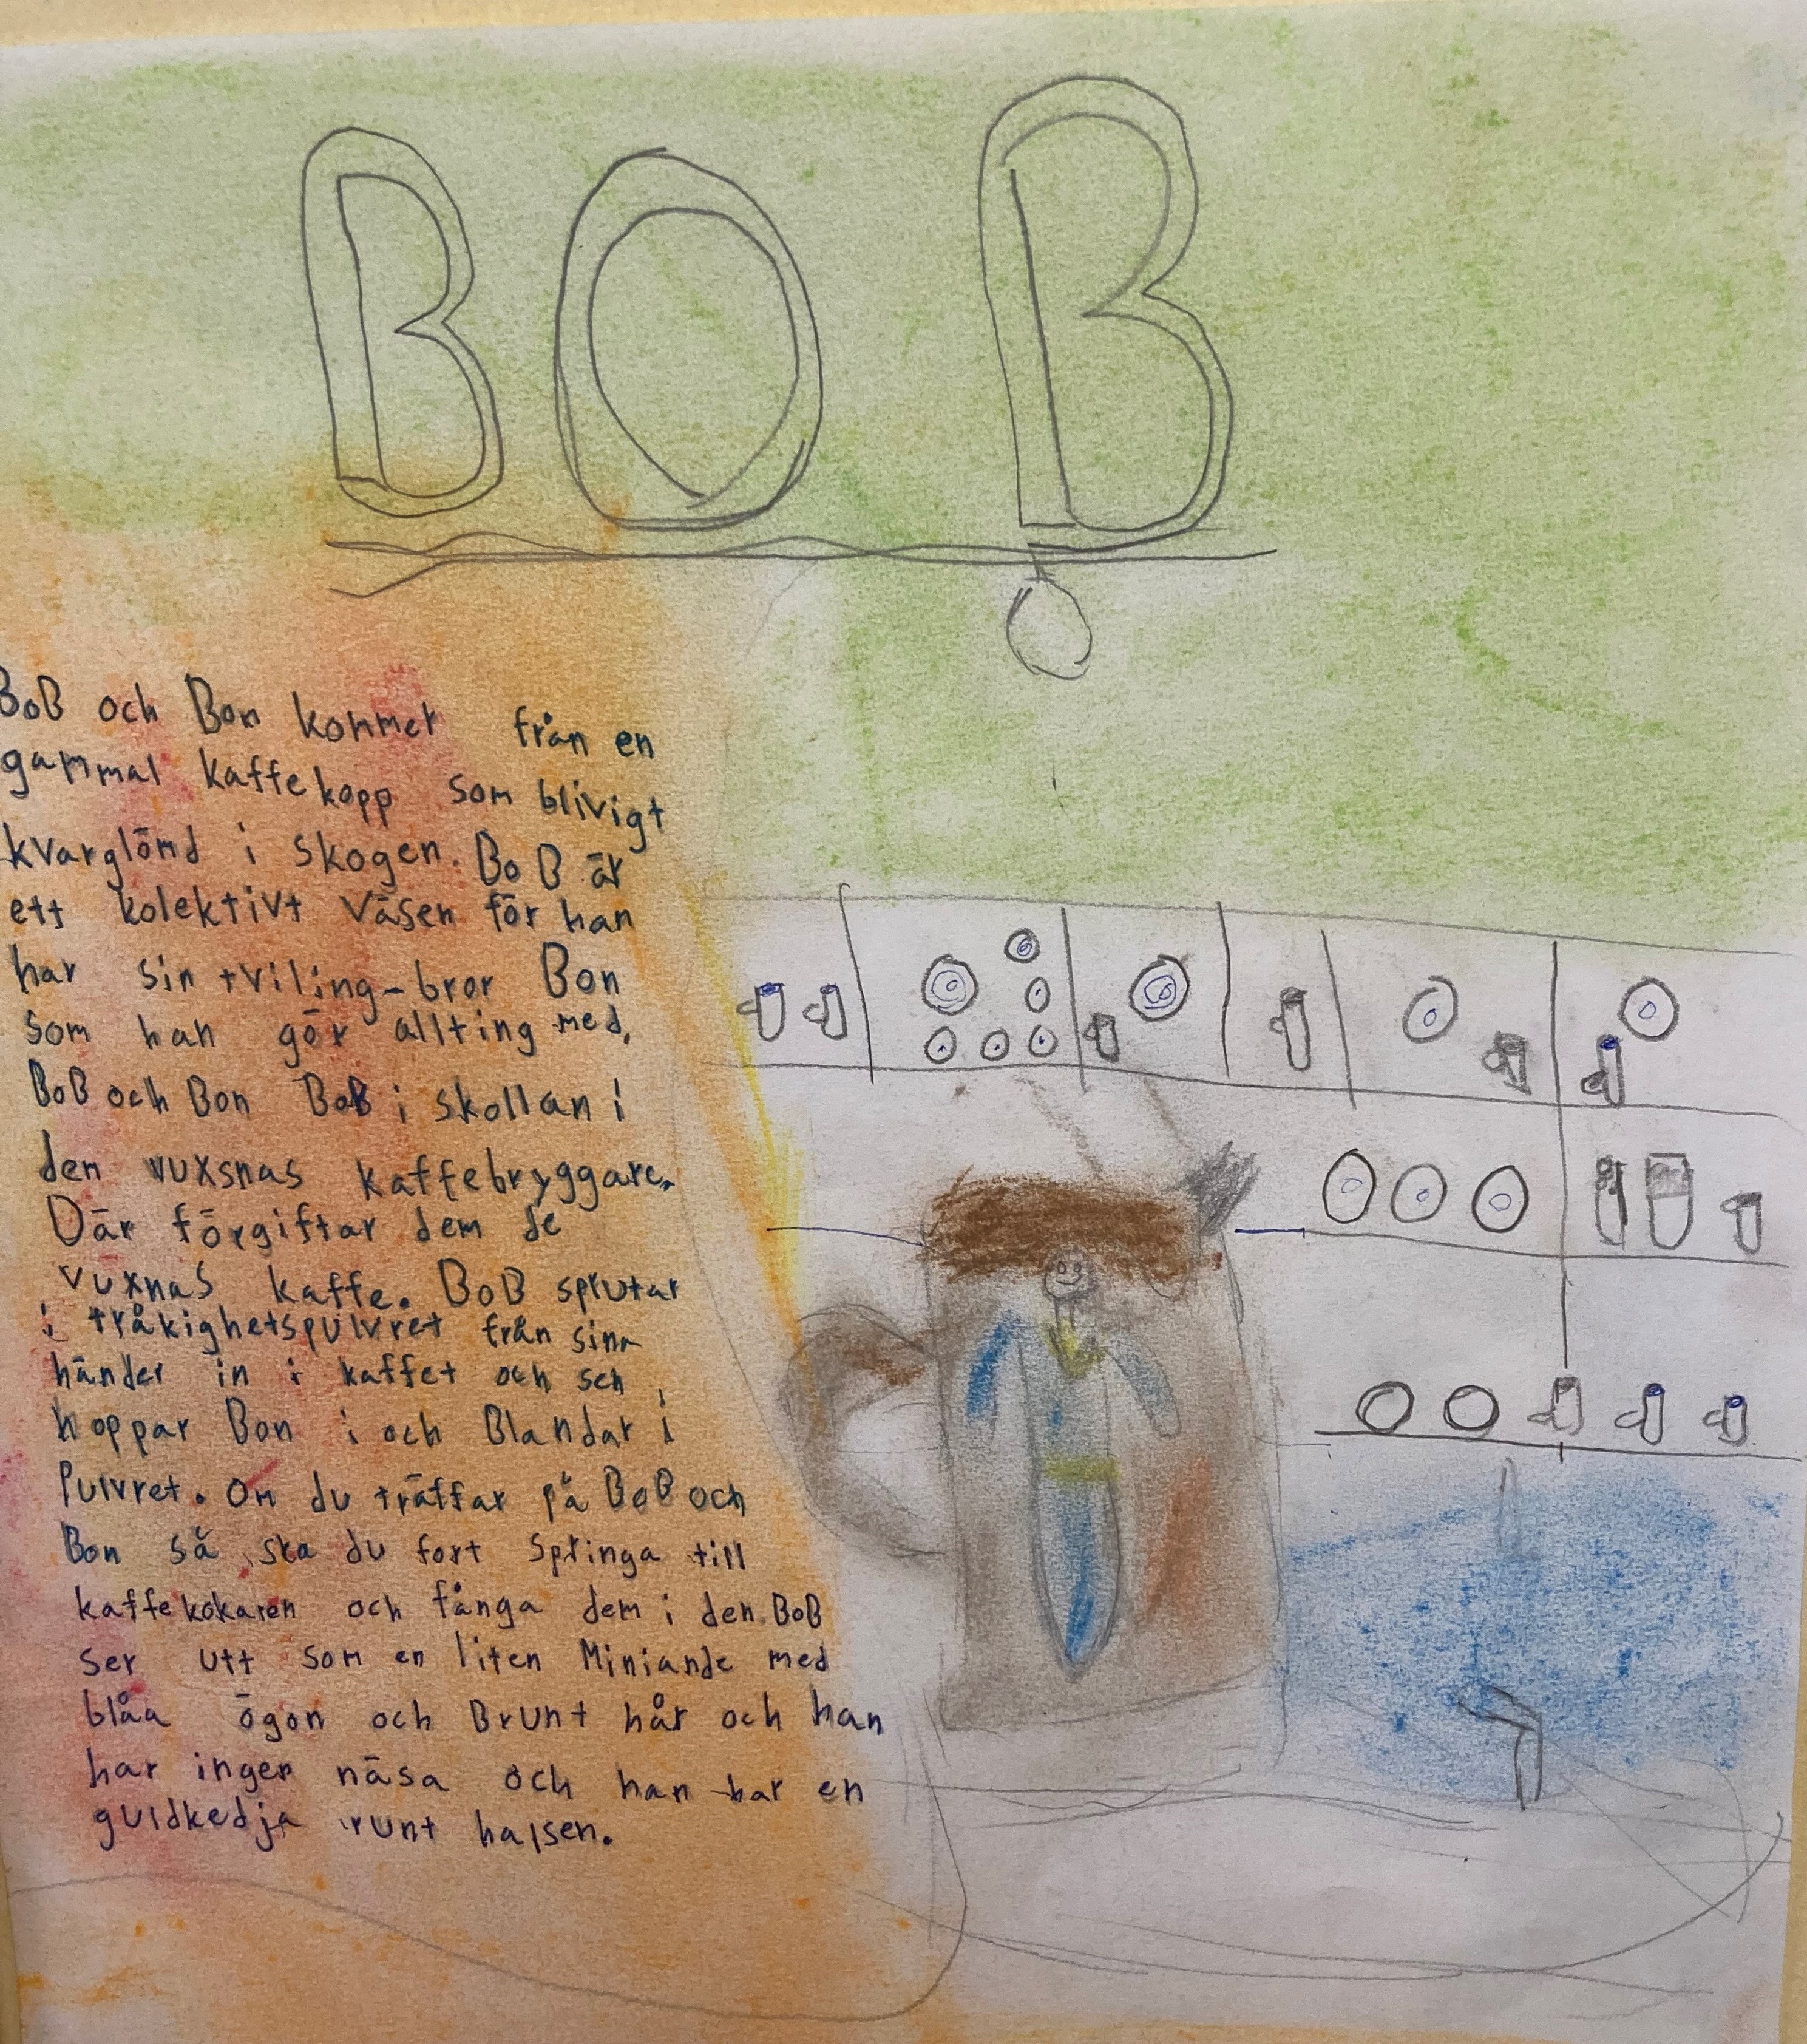 BOB
BoB och Bon kommer från en
gammal kaffekopp som blivigt
kvarglömd i skogen. BoB är
ett kolektivt väsen för han
har sin tviling-bror Bon
som han gör allting med.
BoB och Bon BoB i skollan i
den vuxsnas kaffebryggare.
Där förgiftar dem de
vuxnas kaffe. BoB sprutar
i tråkighetspulvret från sina
händer in i kaffet och sen
hoppar Bon i och Blandar i
Pulvret. Om du träffar på BoB och
Bon så ska du fort springa till
kaffekokaren och fånga dem i den. BoB
ser utt som en liten Miniande med
blåa ögon och Brunt hår och han
har ingen näsa och han har en
guldkedja runt halsen.